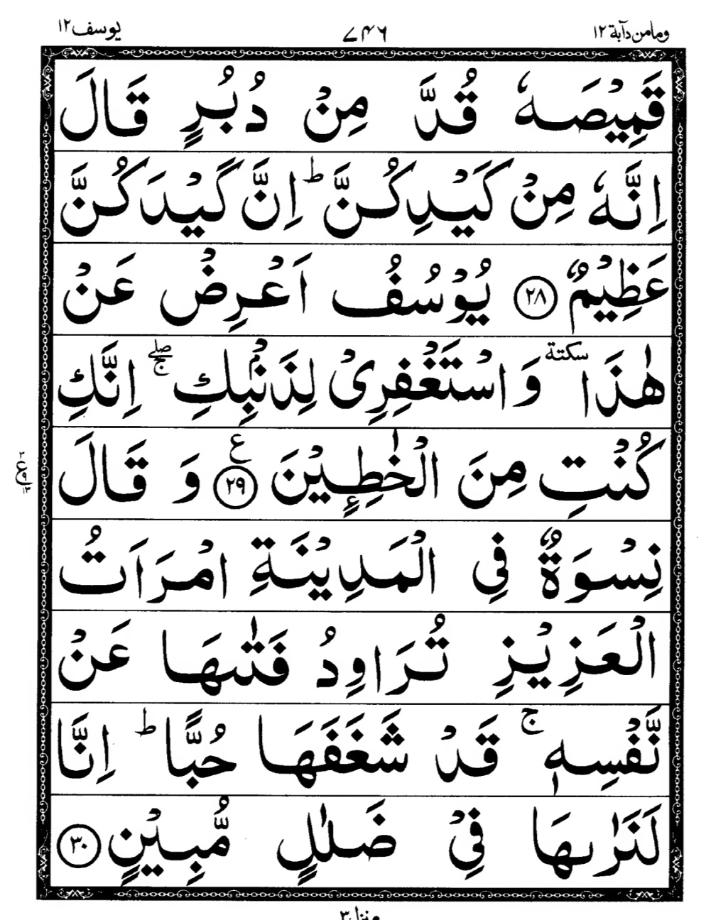 ومامن دآبة ١٢ ٧٤٦ يوسف ١٢
قَمِيْصَهٗ قُدَّ مِنْ دُبُرٍ قَالَ
اِنَّهٗ مِنْ كَيْدِكُنَّ ؕ اِنَّ كَيْدَكُنَّ
عَظِيْمٌ ﴿۲۸﴾ يُوْسُفُ اَعْرِضْ عَنْ
هٰذَا سكتة وَاسْتَغْفِرِىْ لِذَنْۢبِكِ ۖۚ اِنَّكِ
كُنْتِ مِنَ الْخٰطِـِٕيْنَ ﴿۲۹﴾ ع وَ قَالَ
نِسْوَةٌ فِى الْمَدِيْنَةِ امْرَاَتُ
الْعَزِيْزِ تُرَاوِدُ فَتٰٮهَا عَنْ
نَّفْسِهٖ ۚ قَدْ شَغَفَهَا حُبًّا ؕ اِنَّا
لَنَرٰٮهَا فِىْ ضَلٰلٍ مُّبِيْنٍ ﴿۳۰﴾
منزل ٣